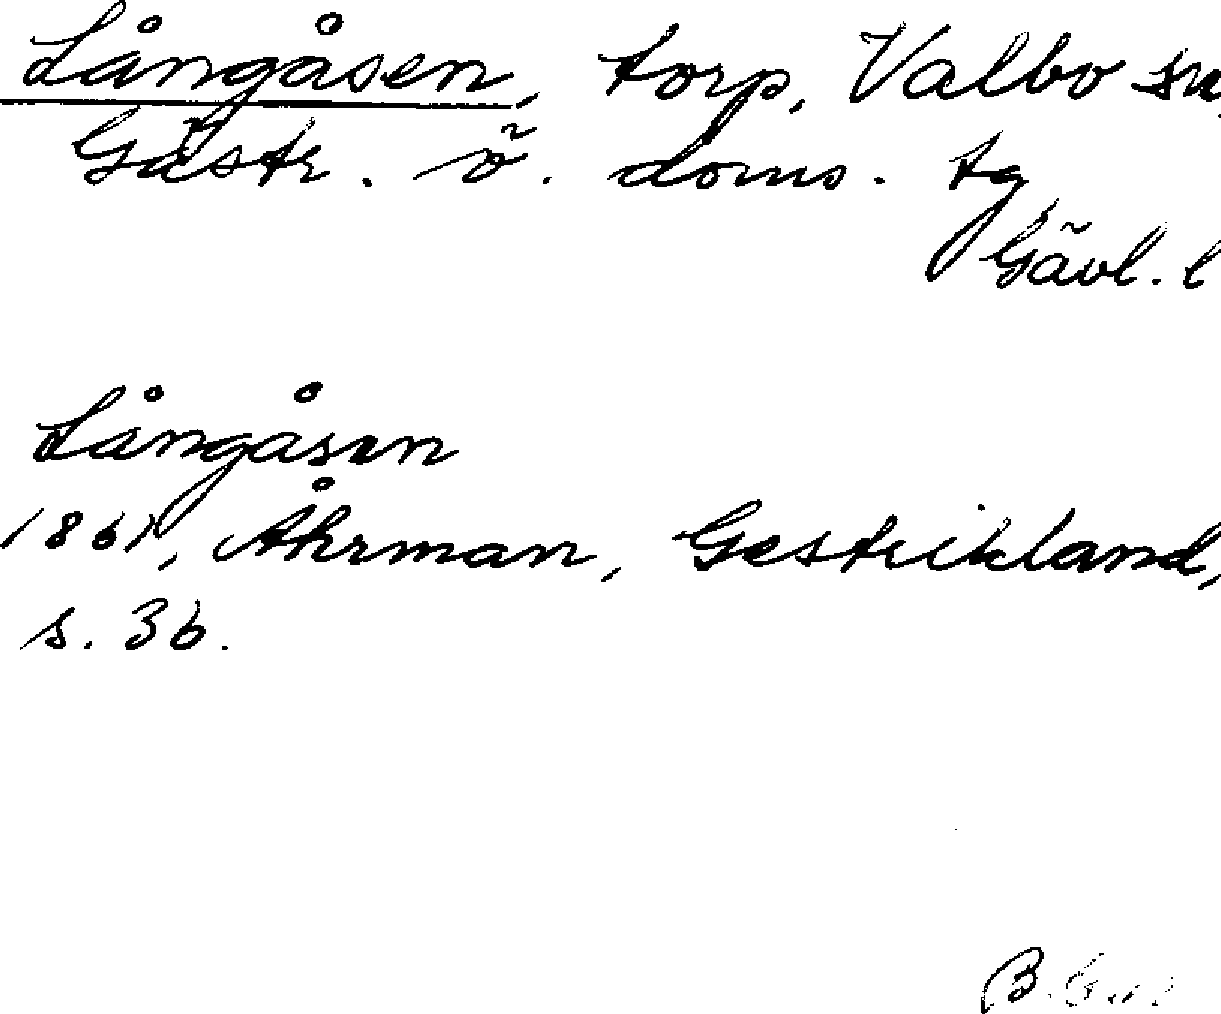 Långåsen, torp, Valbo sn,
Gästr. ö. doms. tg
Gävl. l
Långåsen
1861, Åhrman, Gestrikland,
s. 36.
B.